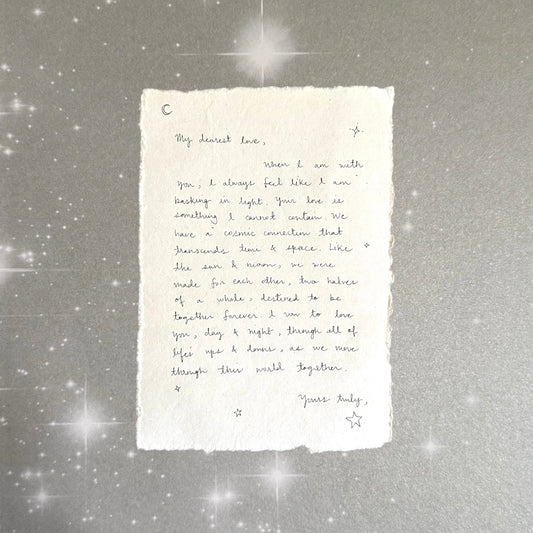 My dearest love,
When I am with
you, I always feel like I am
basking in light. Your love is
something I cannot contain. We
have a cosmic connection that
transcends time & space. Like
the sun & moon, we were
made for each other, two halves
of a whole, destined to be
together forever. I vow to love
you, day & night, through all of
life's ups & downs, as we move
through this world together.
Yours truly,